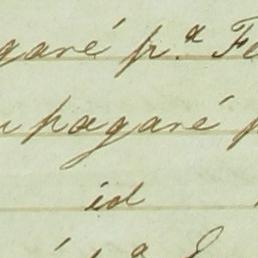 pagaré pr.ª Fe
u pagaré p
id